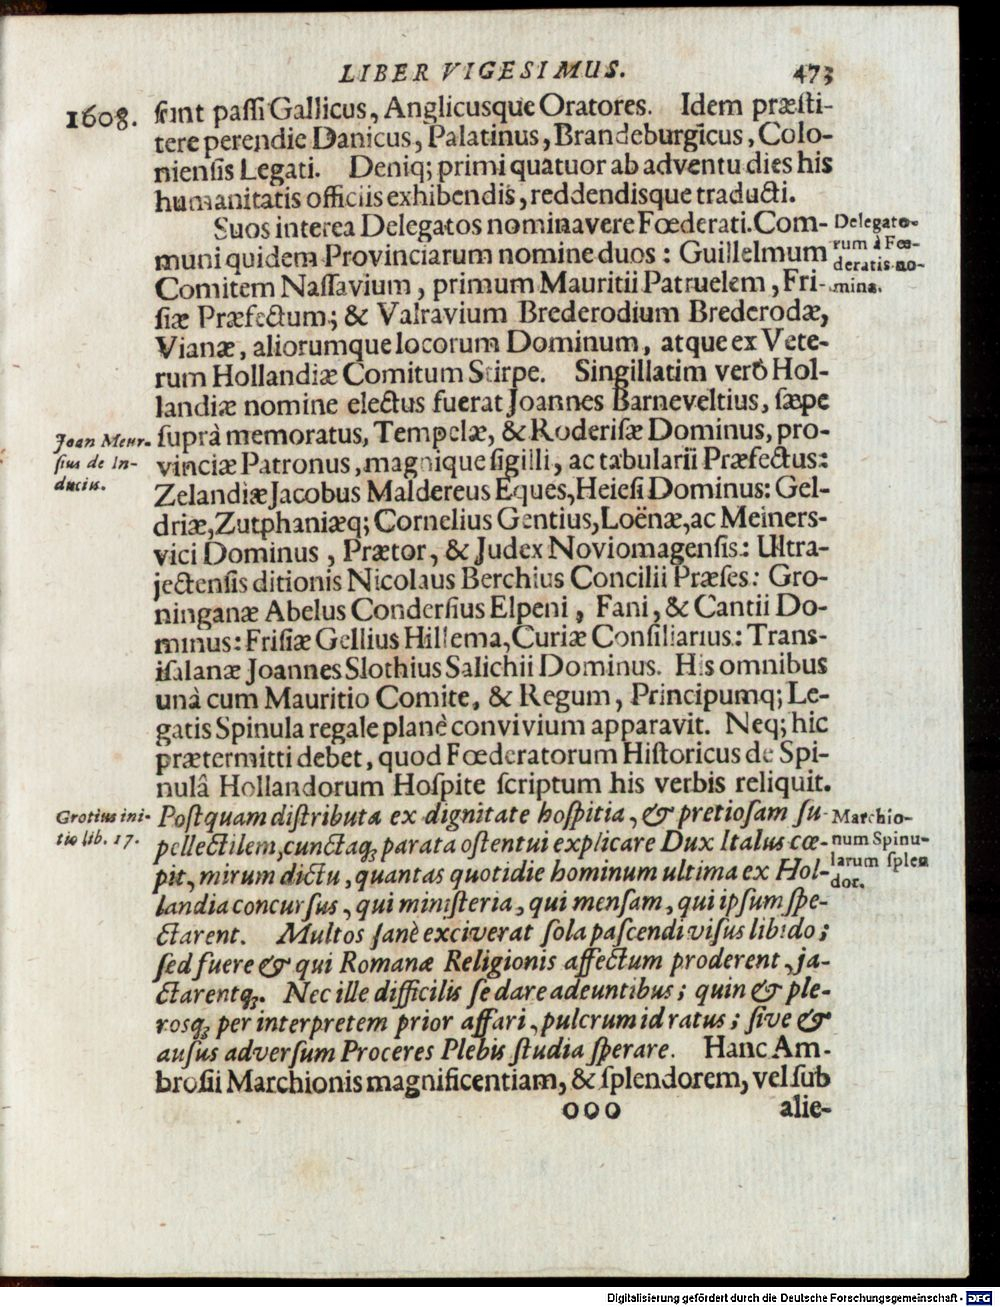 LIBER VIGESIMUS. 473
1608. sint passi Gallicus, Anglicusque Oratores. Idem præsti-
tere perendie Danicus, Palatinus, Brandeburgicus, Colo-
niensis Legati. Deniq; primi quatuor ab adventu dies his
humanitatis officiis exhibendis, reddendisque traducti.
Suos interea Delegatos nominavere Fœderati. Com-
muni quidem Provinciarum nomine duos: Guillelmum
Comitem Nassavium, primum Mauritii Patruelem, Fri-
siæ Præfectum; & Valravium Brederodium Brederodæ,
Vianæ, aliorumque locorum Dominum, atque ex Vete-
rum Hollandiæ Comitum Stirpe. Singillatim verò Hol-
landiæ nomine electus fuerat Joannes Barneveltius, sæpe
suprà memoratus, Tempelæ, & Roderisæ Dominus, pro-
vinciæ Patronus, magnique sigilli, ac tabularii Præfectus:
Zelandiæ Jacobus Maldereus Eques, Heiesi Dominus: Gel-
driæ, Zutphaniæq; Cornelius Gentius, Loënæ, ac Meiners-
vici Dominus, Prætor, & Judex Noviomagensis: Ultra-
jectensis ditionis Nicolaus Berchius Concilii Præses: Gro-
ninganæ Abelus Condersius Elpeni, Fani, & Cantii Do-
minus: Frisiæ Gellius Hillema, Curiæ Consiliarius: Trans-
isalanæ Joannes Slothius Salichii Dominus. His omnibus
unà cum Mauritio Comite, & Regum, Principumq; Le-
gatis Spinula regale planè convivium apparavit. Neq; hic
prætermitti debet, quod Fœderatorum Historicus de Spi-
nulâ Hollandorum Hospite scriptum his verbis reliquit.
Postquam distributa ex dignitate hospitia, & pretiosam su-
pellectilem, cunctaq; parata ostentui explicare Dux Italus cœ-
pit, mirum dictu, quantas quotidie hominum ultima ex Hol-
landia concursus, qui ministeria, qui mensam, qui ipsum spe-
ctarent. Multos sanè exciverat sola pascendi visus libido;
sed fuere & qui Romanæ Religionis affectum proderent, ja-
ctarentq;. Nec ille difficilis se dare adeuntibus; quin & ple-
rosq; per interpretem prior affari, pulcrum id ratus; sive &
ausus adversum Proceres Plebis studia sperare. Hanc Am-
brosii Marchionis magnificentiam, & splendorem, vel sub
ooo alie-
Delegato-
rum à Fœ-
deratis no-
mina.
Joan Meur-
sius de In-
duciis.
Grotius ini-
tio lib. 17.
Marchio-
num Spinu-
larum splen
dor.
Digitalisierung gefördert durch die Deutsche Forschungsgemeinschaft - DFG